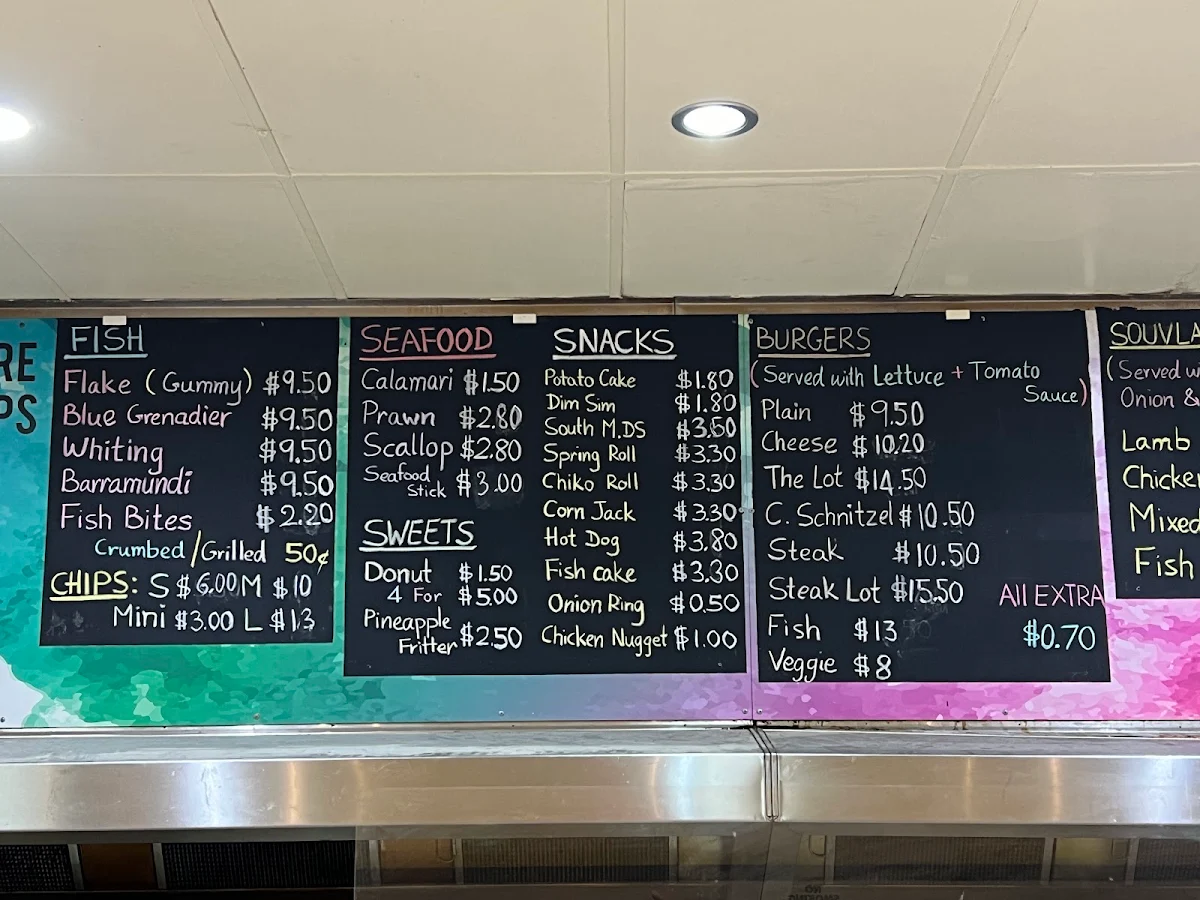 RE
PS
FISH
Flake (Gummy) $9.50
Blue Grenadier $9.50
Whiting $9.50
Barramundi $9.50
Fish Bites $2.20
Crumbed/Grilled 50¢
CHIPS: S $6.00 M $10
Mini $3.00 L $13
SEAFOOD
Calamari $1.50
Prawn $2.80
Scallop $2.80
Seafood
Stick $3.00
SWEETS
Donut $1.50
4 For $5.00
Pineapple
Fritter $2.50
SNACKS
Potato Cake $1.80
Dim Sim $1.80
South M.DS $3.60
Spring Roll $3.30
Chiko Roll $3.30
Corn Jack $3.30
Hot Dog $3.80
Fish cake $3.30
Onion Ring $0.50
Chicken Nugget $1.00
BURGERS
(Served with Lettuce + Tomato
Sauce)
Plain $9.50
Cheese $10.20
The Lot $14.50
C. Schnitzel $10.50
Steak $10.50
Steak Lot $15.50
Fish $13
Veggie $8
All EXTRA
$0.70
SOUVLA
(Served w
Onion &
Lamb
Chicken
Mixed
Fish